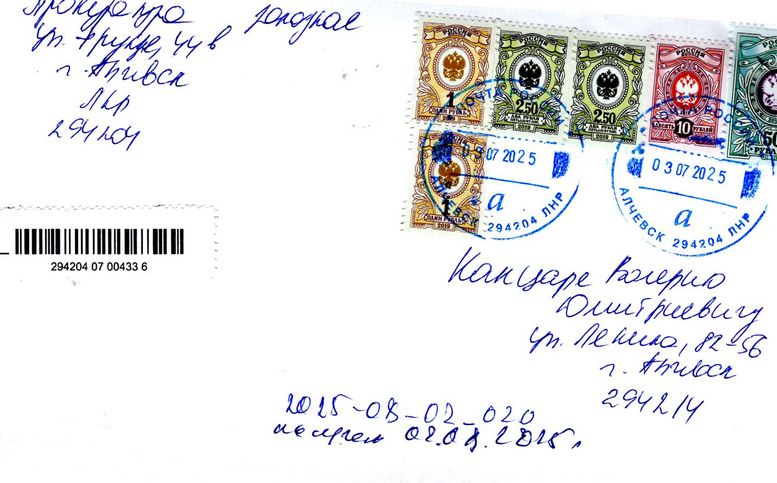 Прокуратура
ул. Фрунзе, 44в
г. Алчевск
ЛНР
294204
РОССИЯ
1
ОДИН РУБЛЬ
2019
РОССИЯ
2.50
ДВА РУБЛЯ
2019
РОССИЯ
2.50
ДВА РУБЛЯ
2019
РОССИЯ
10
ДЕСЯТЬ РУБЛЕЙ
50
РУБЛЕЙ
1
ОДИН РУБЛЬ
2019
ПОЧТА РОССИИ
03 07 2025
а
АЛЧЕВСК 294204 ЛНР
ПОЧТА РОССИИ
03 07 2025
а
АЛЧЕВСК 294204 ЛНР
294204 07 00433 6
Канцаре Валерию
Дмитриевичу
ул. Ленина, 82-56
г. Алчевск
294214
2025-08-02_020
02.08.2025г